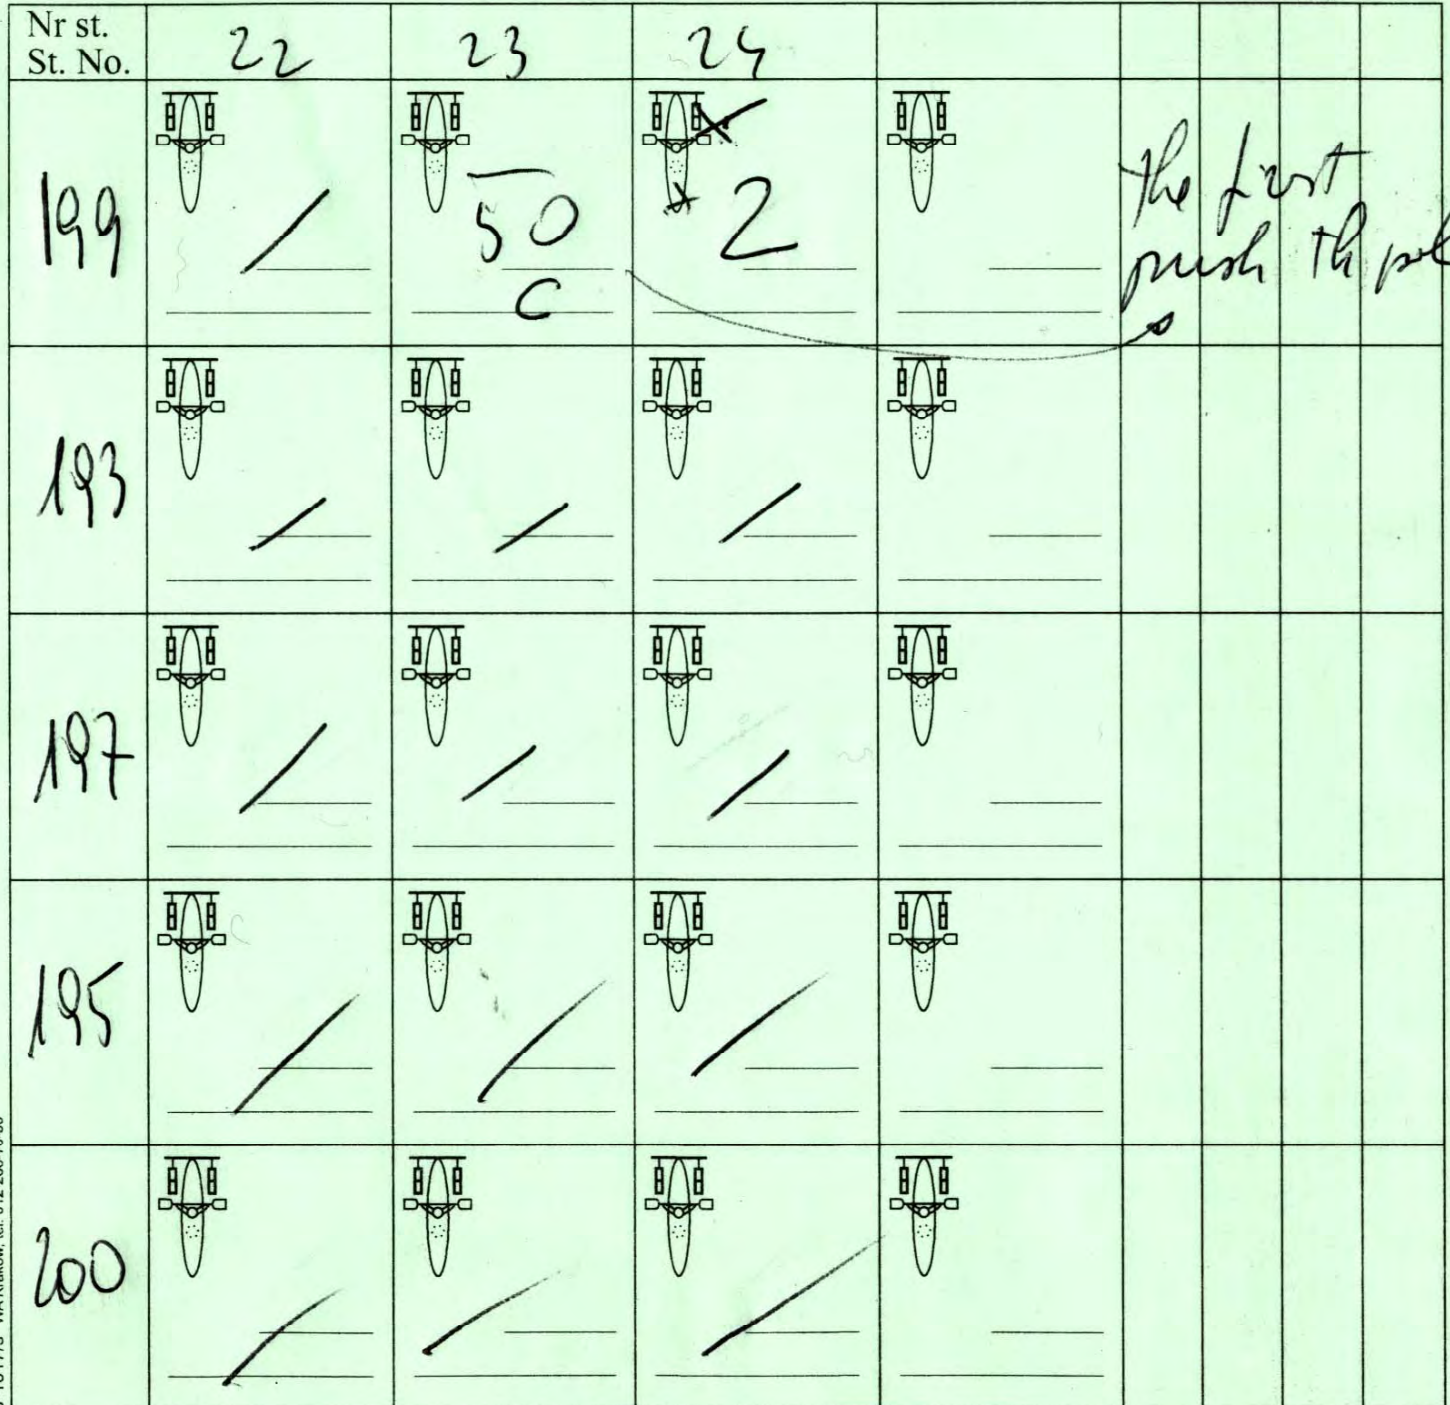 Nr st.
St. No. 22 23 24
199 / 50 2 the first
C push th pole
193 / / /
197 / / /
195 / / /
200 / / /